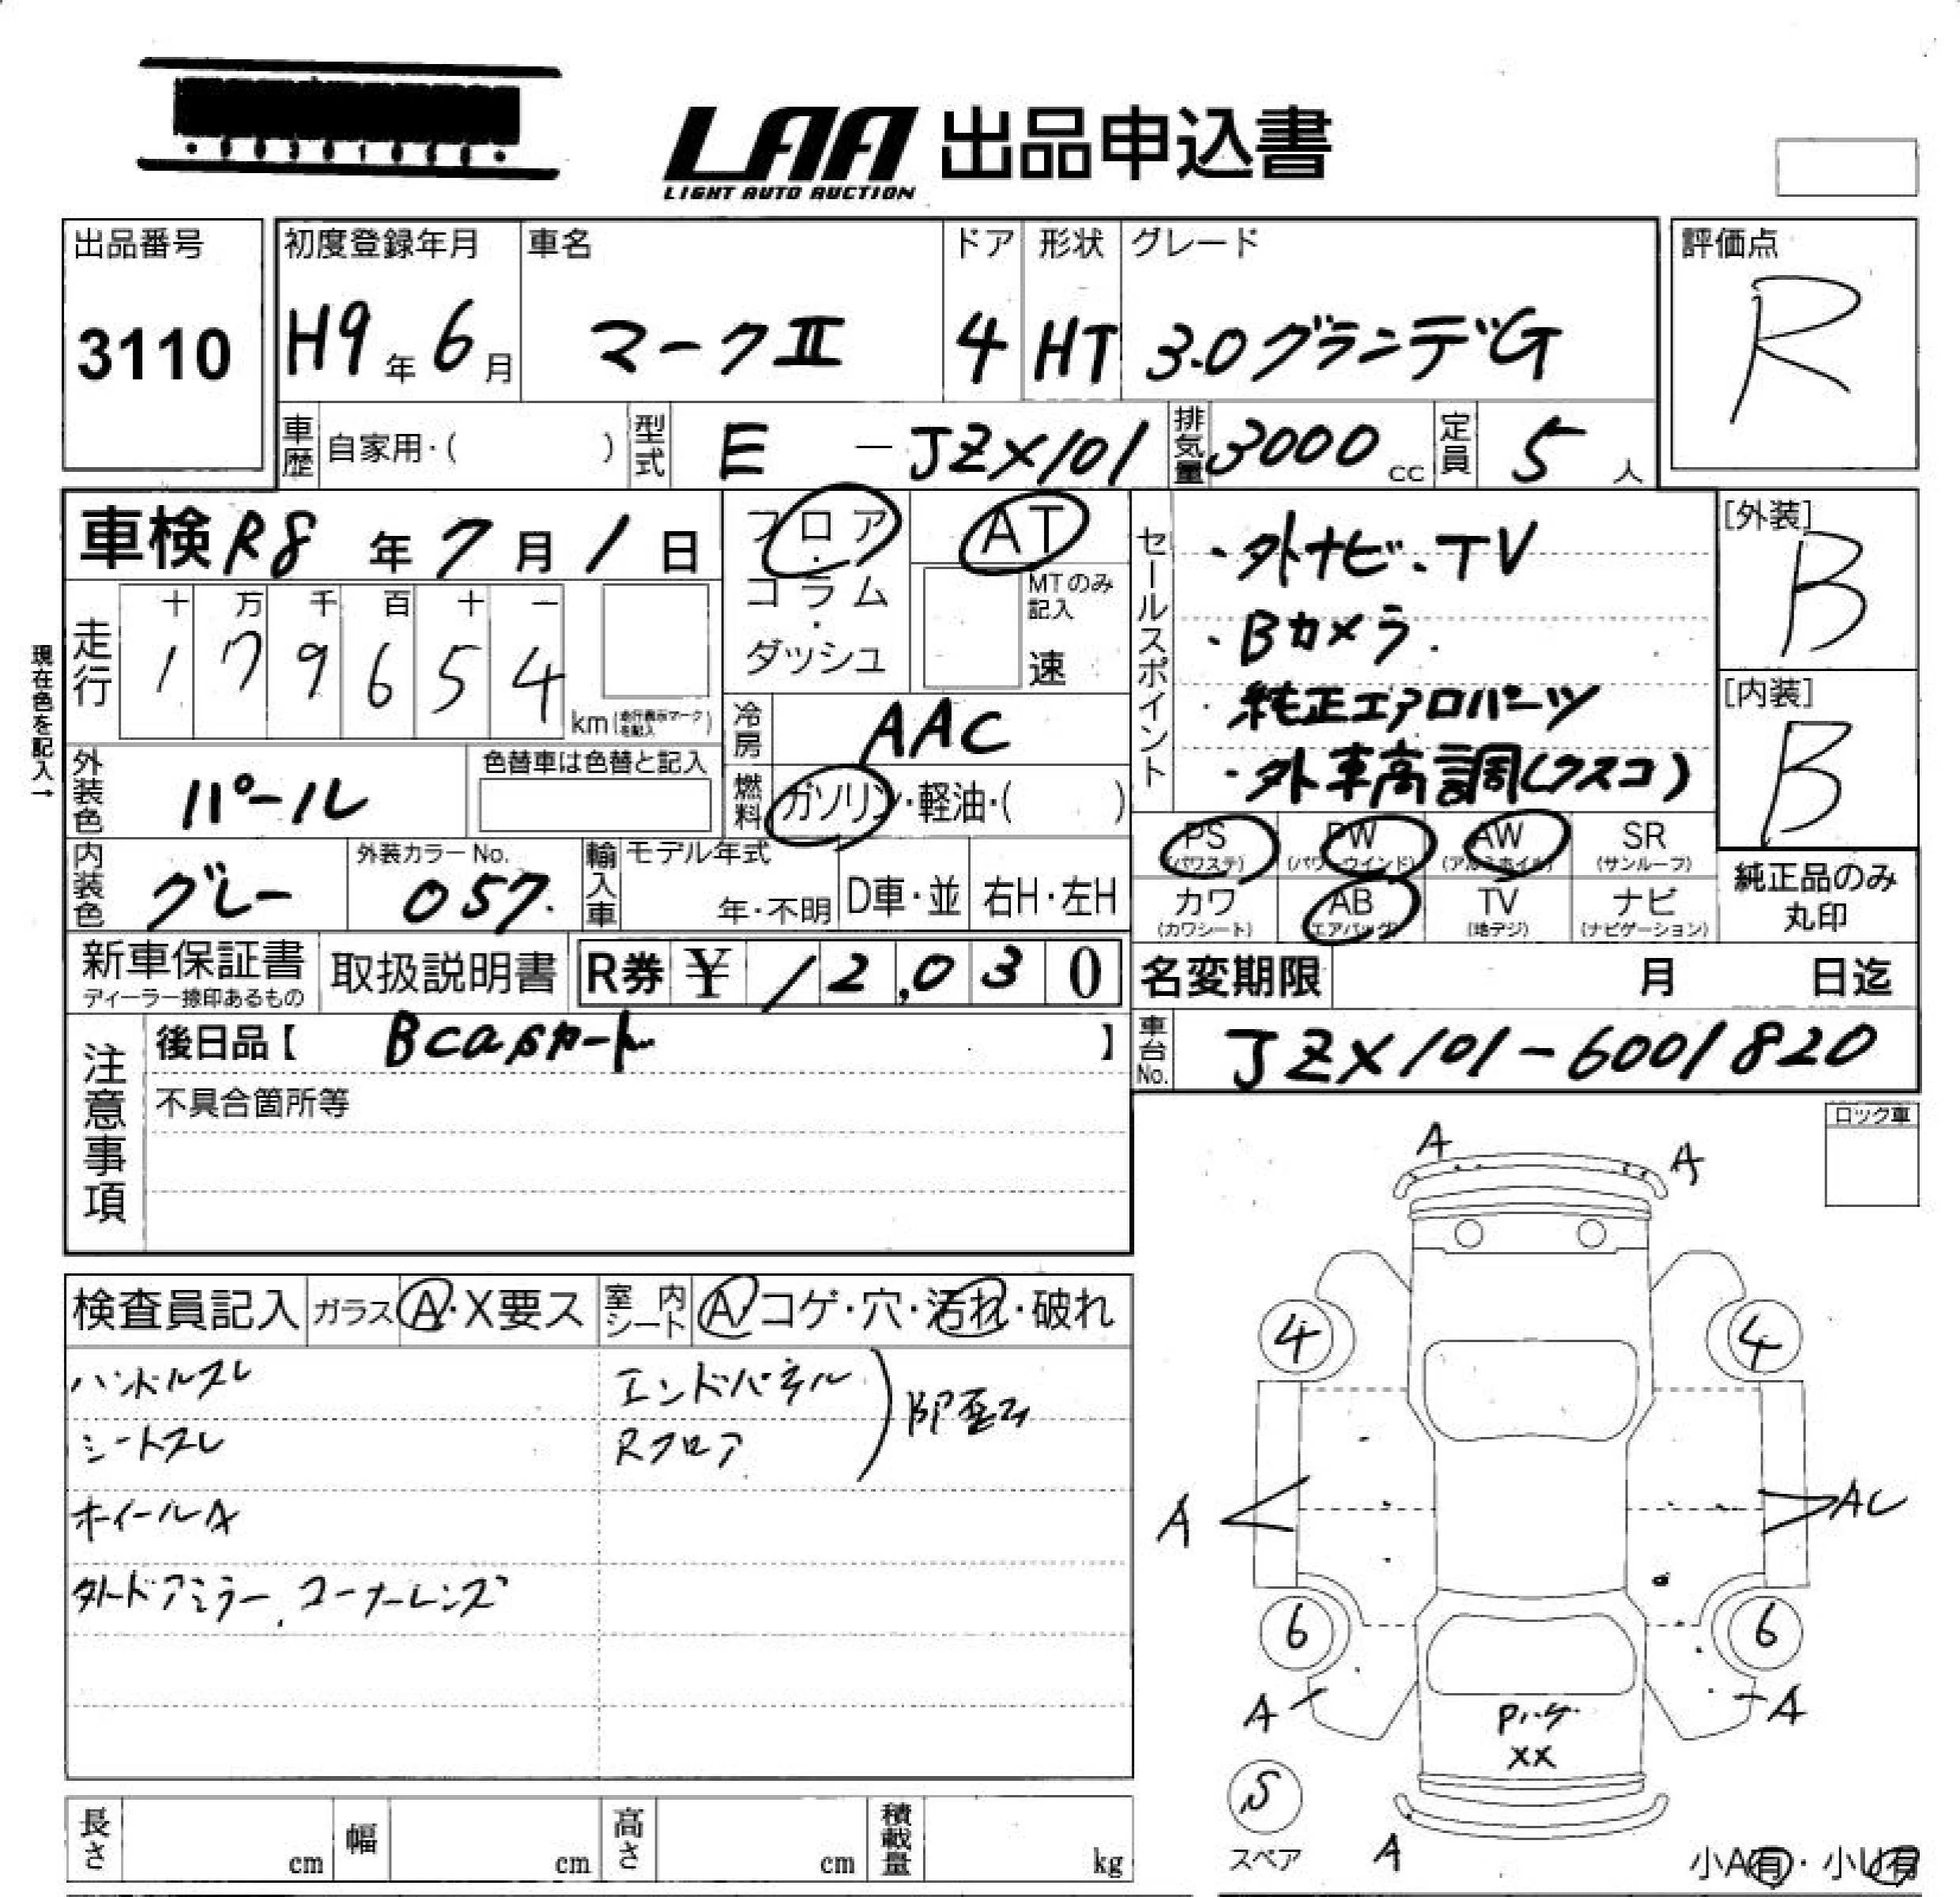 LAA 出品申込書
LIGHT AUTO AUCTION
出品番号
3110
初度登録年月
H9年6月
車名
マークⅡ
ドア
4
形状
HT
グレード
3.0グランデG
評価点
R
車歴 自家用・( )
型式 E-JZX101
排気量 3000cc
定員 5人
車検 R8年7月1日
フロア・コラム・ダッシュ
AT
MTのみ記入
速
セールスポイント
・外ナビ.TV
・Bカメラ.
・純正エアロパーツ
・外車高調(クスコ)
[外装]
B
[内装]
B
現在色を記入→
走行
十 万 千 百 十 一
1 7 9 6 5 4
km(走行表示マークを記入)
冷房 AAC
外装色 パール
色替車は色替と記入
燃料 ガソリン・軽油・( )
PS (パワステ)
PW (パワーウインド)
AW (アルミホイル)
SR (サンルーフ)
カワ (カワシート)
AB (エアバッグ)
TV (地デジ)
ナビ (ナビゲーション)
純正品のみ
丸印
内装色 グレー
外装カラーNo.
057.
輸入車 モデル年式
年・不明
D車・並
右H・左H
新車保証書
ディーラー捺印あるもの
取扱説明書
R券 ¥ 12,030
名変期限 月 日迄
注意事項
後日品【 Bcasカート 】
車台No. JZX101-6001820
不具合箇所等
ロック車
A
A
検査員記入
ガラス A・X要ス
室内シート A コゲ・穴・汚れ・破れ
ハンドルスレ
シートスレ
ホイールA
外ドアミラー、コーナーレンズ
エンドパネル
Rフロア
即歪み
4
4
A
AU
6
6
A
A
Pハゲ
XX
S
スペア
A
小A有・小U有
長さ cm
幅 cm
高さ cm
積載量 kg